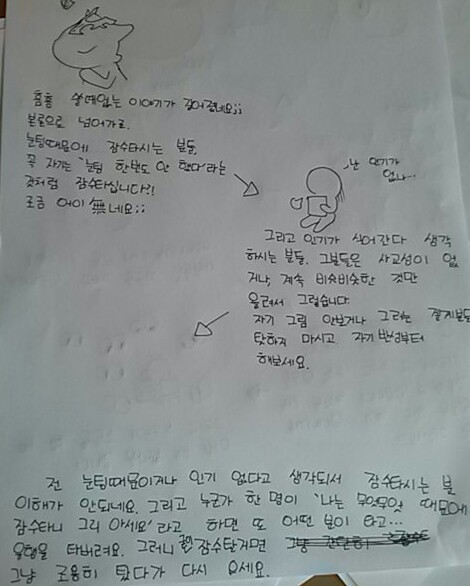 흠흠 쓸데없는 이야기가 길어졌네요;;
본론으로 넘어가죠.
눈팅때문에 잠수타시는 분들,
꼭 자기는 '눈팅 한번도 안 했다'라는
것처럼 잠수타십니다?!
조금 어이 無네요;;
난 인기가
없나...
그리고 인기가 식어간다 생각
하시는 분들. 그분들은 사교성이 없
거나, 계속 비슷비슷한 것만
올려서 그렇습니다.
자기 그림 안보거나 그러는 분들
탓하지 마시고 자기반성부터
해보세요.
전 눈팅때문이거나 인기 없다고 생각되서 잠수타시는 분
이해가 안되네요. 그리고 누군가 한 명이 '나는 무엇무엇 때문에
잠수타니 그리 아세요'라고 하면 또 어떤 분이 타고...
유행을 타버려요. 그러니 잠수탈거면
그냥 조용히 탔다가 다시 오세요.